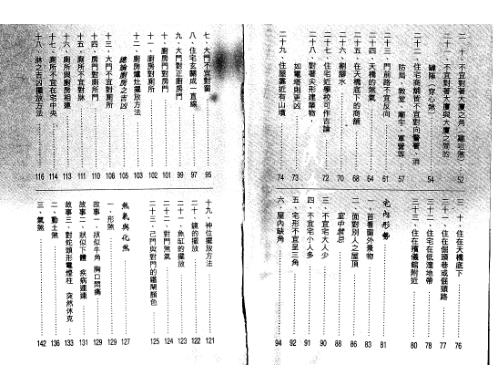 二十、不宜對著大廈之角，雞咀煞 52
二十一、不宜對著大廈與大廈之間的
罅隙（穿心煞） 54
二十二、住宅商舖皆不宜對向醫署、消
防局、教堂、廟宇、軍營等 57
二十三、門前路不宜反向 61
二十四、天橋的煞氣 64
二十五、在大橋底下的商舖 68
二十六、割腳水 70
二十七、住宅近學校可作吉論 72
二十八、對著尖形建築物，
如電塔則更凶 73
二十九、住屋靠近有山墳 74
三十、住在天橋底下 76
三十一、住在倔頭巷或倔頭路 77
三十二、住宅在低漥地帶 78
三十三、住在殯儀館附近 80
宅內形勢 81
一、首看窗外景物 83
二、面對別人之屋頂 86
室中禁忌 88
三、不宜宅大人少 90
四、不宜宅小人多 91
五、宅形不宜呈三角 92
六、屋內缺角 94
七、大門不宜對窗 95
八、住宅玄關成一直線 97
九、大門對正廚房門 99
十、廚房門對房門 101
十一、廚房對廁所 102
十二、廚房爐灶擺放方法 103
廁所之吉凶 105
十三、大門不宜對廁所 106
十四、房門對廁所門 110
十五、廁所不宜對牀 111
十六、廁所與廚房相連 113
十七、廁所不宜在宅中央 114
十八、牀之吉凶擺放方法 116
十九、神位擺放方法 121
二十、鏡的擺放 122
二十一、魚缸的擺放 123
二十二、對門煞氣 124
二十三、己門與對門的鐵閘顏色 125
煞氣與化煞 127
一、形煞 129
故事一、狀似牛角 胸口悶痛 129
故事二、狀似下體 疾病連連 131
故事三、對蛇頭形電燈柱 突然休克 133
二、動土煞 136
三、氣煞 142